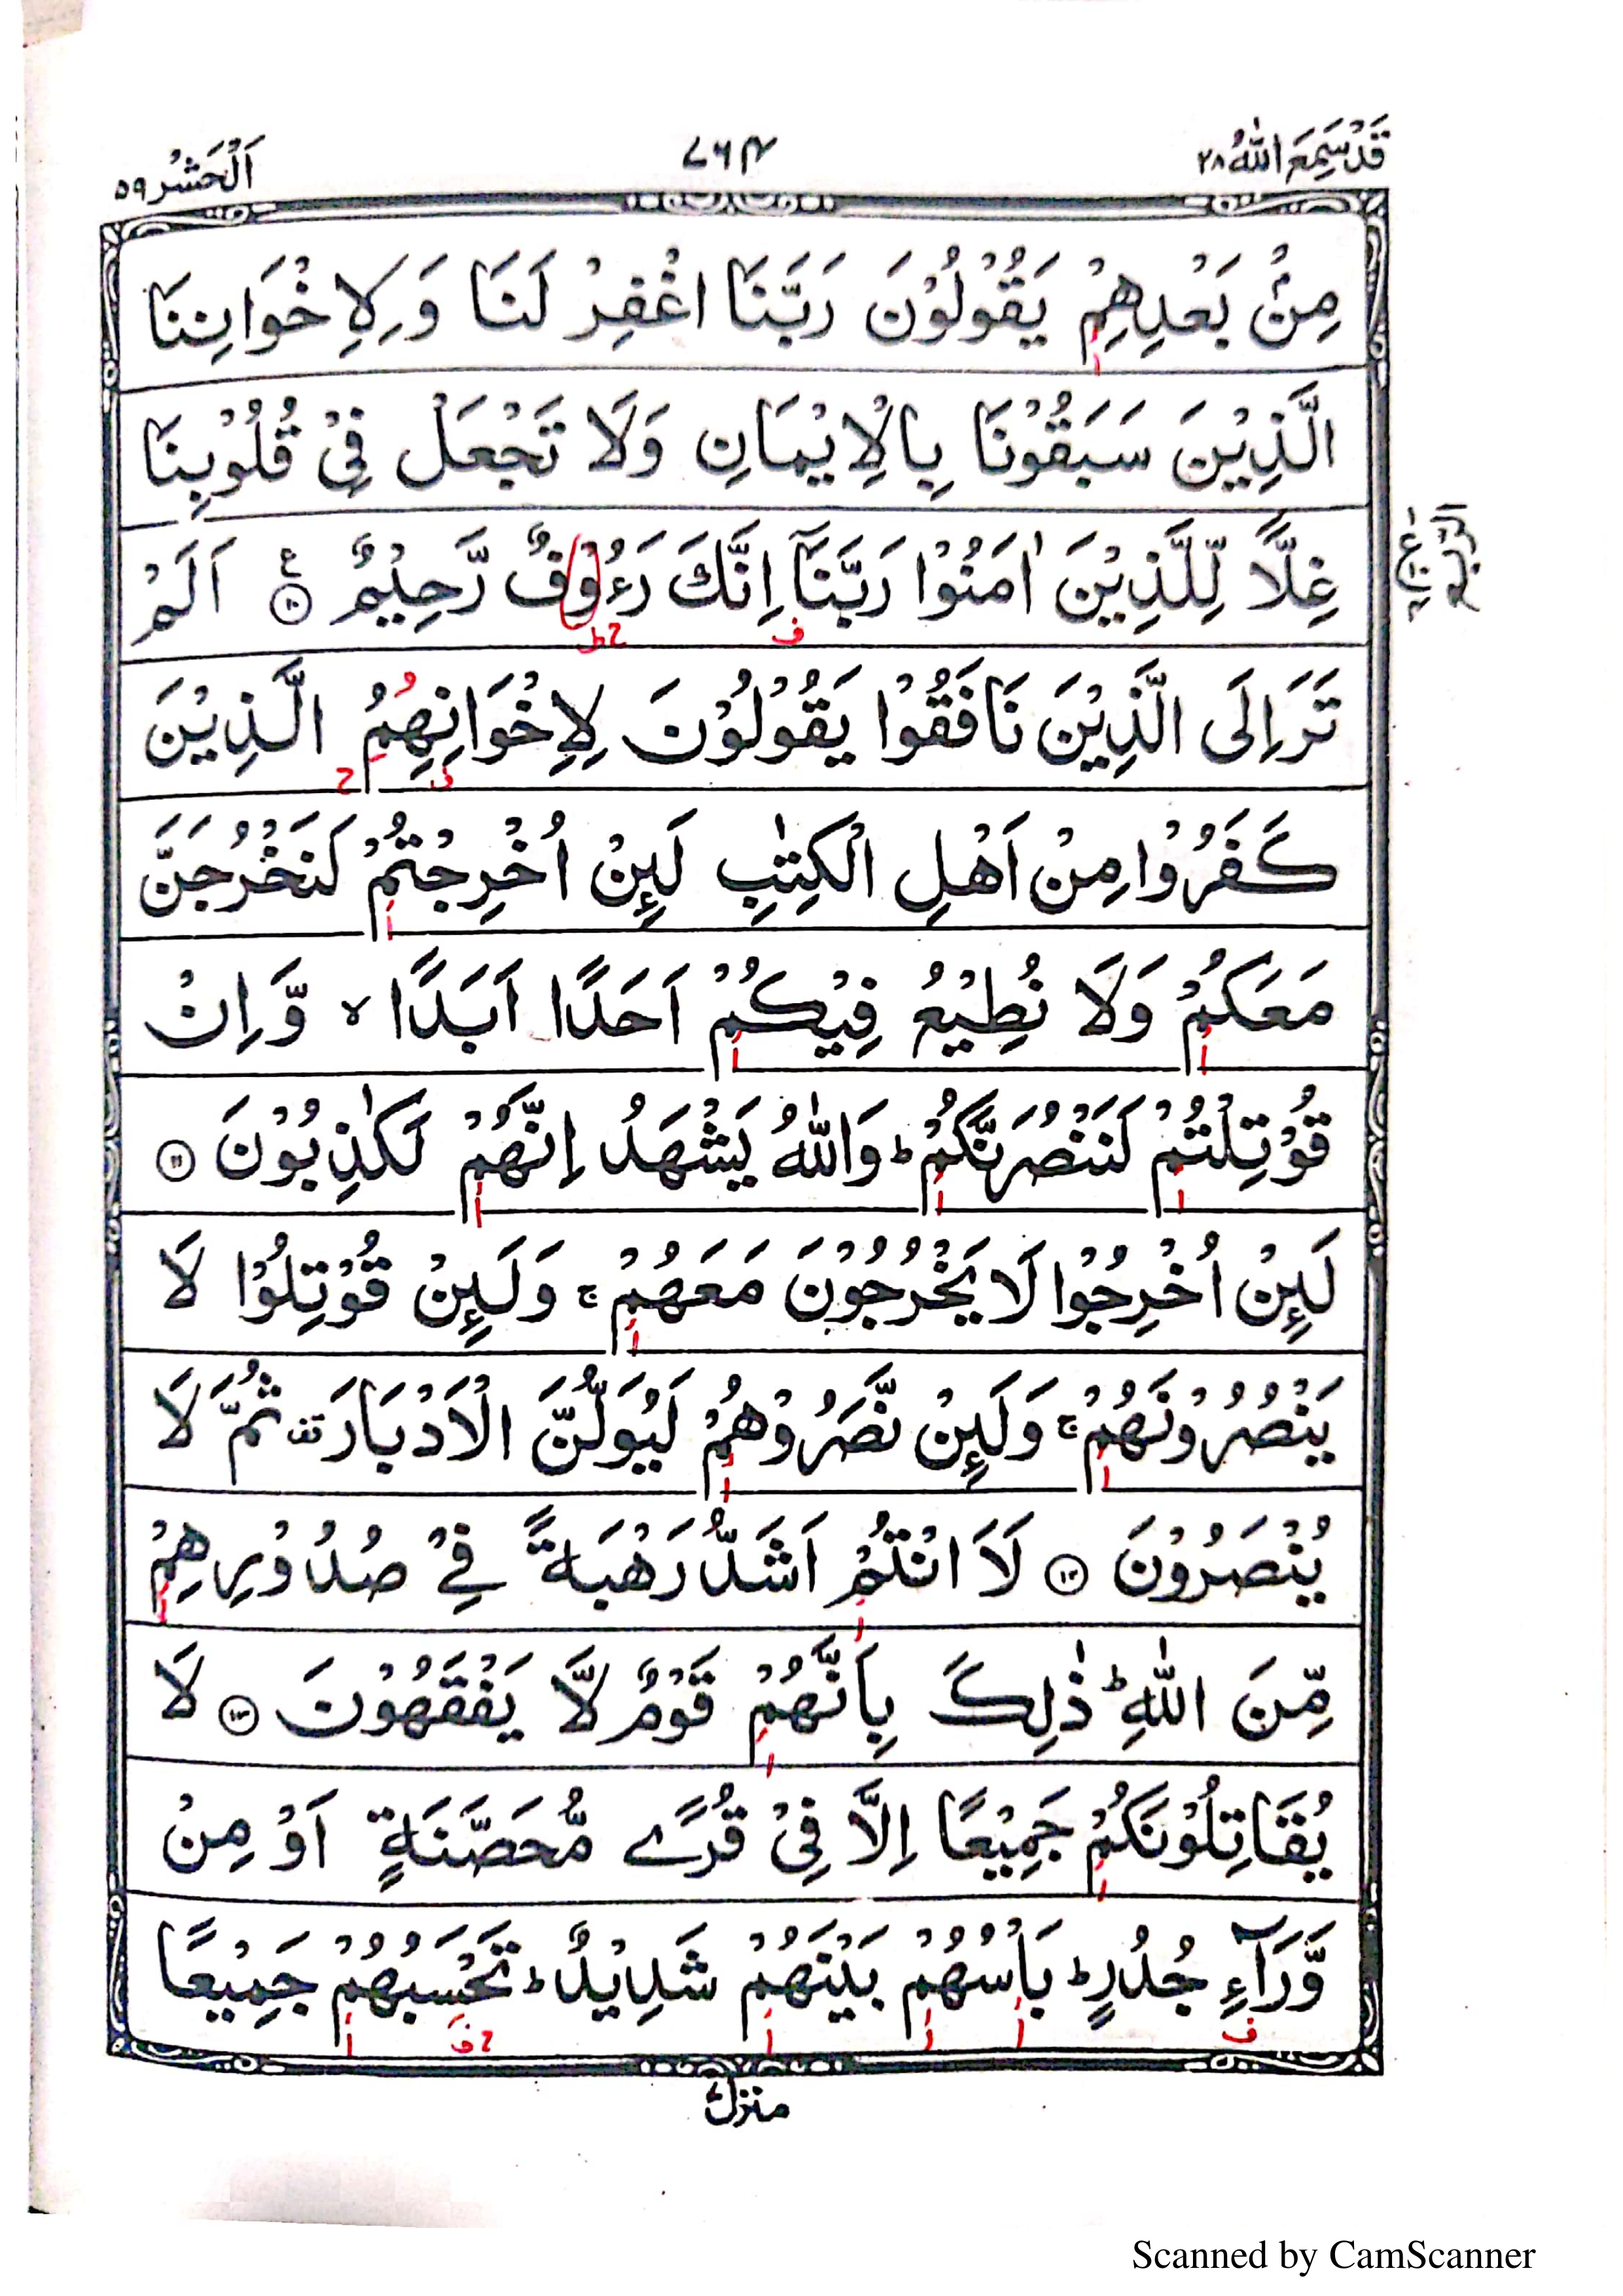 قَدْ سَمِعَ اللّٰهُ ٢٨
٧٦٤
اَلْحَشْر ٥٩
مِنْۢ بَعْدِهِمْ يَقُوْلُوْنَ رَبَّنَا اغْفِرْ لَنَا وَ لِاِخْوَانِنَا
الَّذِيْنَ سَبَقُوْنَا بِالْاِيْمَانِ وَلَا تَجْعَلْ فِيْ قُلُوْبِنَا
غِلًّا لِّلَّذِيْنَ اٰمَنُوْا رَبَّنَآ اِنَّكَ رَءُوْفٌ رَّحِيْمٌ ۧ ١٠ اَلَمْ
تَرَ اِلَى الَّذِيْنَ نَافَقُوْا يَقُوْلُوْنَ لِاِخْوَانِهِمُ الَّذِيْنَ
كَفَرُوْا مِنْ اَهْلِ الْكِتٰبِ لَئِنْ اُخْرِجْتُمْ لَنَخْرُجَنَّ
مَعَكُمْ وَلَا نُطِيْعُ فِيْكُمْ اَحَدًا اَبَدًا ۙ وَّاِنْ
قُوْتِلْتُمْ لَنَنْصُرَنَّكُمْ ؕ وَاللّٰهُ يَشْهَدُ اِنَّهُمْ لَكٰذِبُوْنَ ١١
لَئِنْ اُخْرِجُوْا لَا يَخْرُجُوْنَ مَعَهُمْ ۚ وَلَئِنْ قُوْتِلُوْا لَا
يَنْصُرُوْنَهُمْ ۚ وَلَئِنْ نَّصَرُوْهُمْ لَيُوَلُّنَّ الْاَدْبَارَ ۟ ثُمَّ لَا
يُنْصَرُوْنَ ١٢ لَاَ انْتُمْ اَشَدُّ رَهْبَةً فِيْ صُدُوْرِهِمْ
مِّنَ اللّٰهِ ؕ ذٰلِكَ بِاَنَّهُمْ قَوْمٌ لَّا يَفْقَهُوْنَ ١٣ لَا
يُقَاتِلُوْنَكُمْ جَمِيْعًا اِلَّا فِيْ قُرًى مُّحَصَّنَةٍ اَوْ مِنْ
وَّرَآءِ جُدُرٍ ؕ بَاْسُهُمْ بَيْنَهُمْ شَدِيْدٌ ؕ تَحْسَبُهُمْ جَمِيْعًا
منزل ٧
Scanned by CamScanner